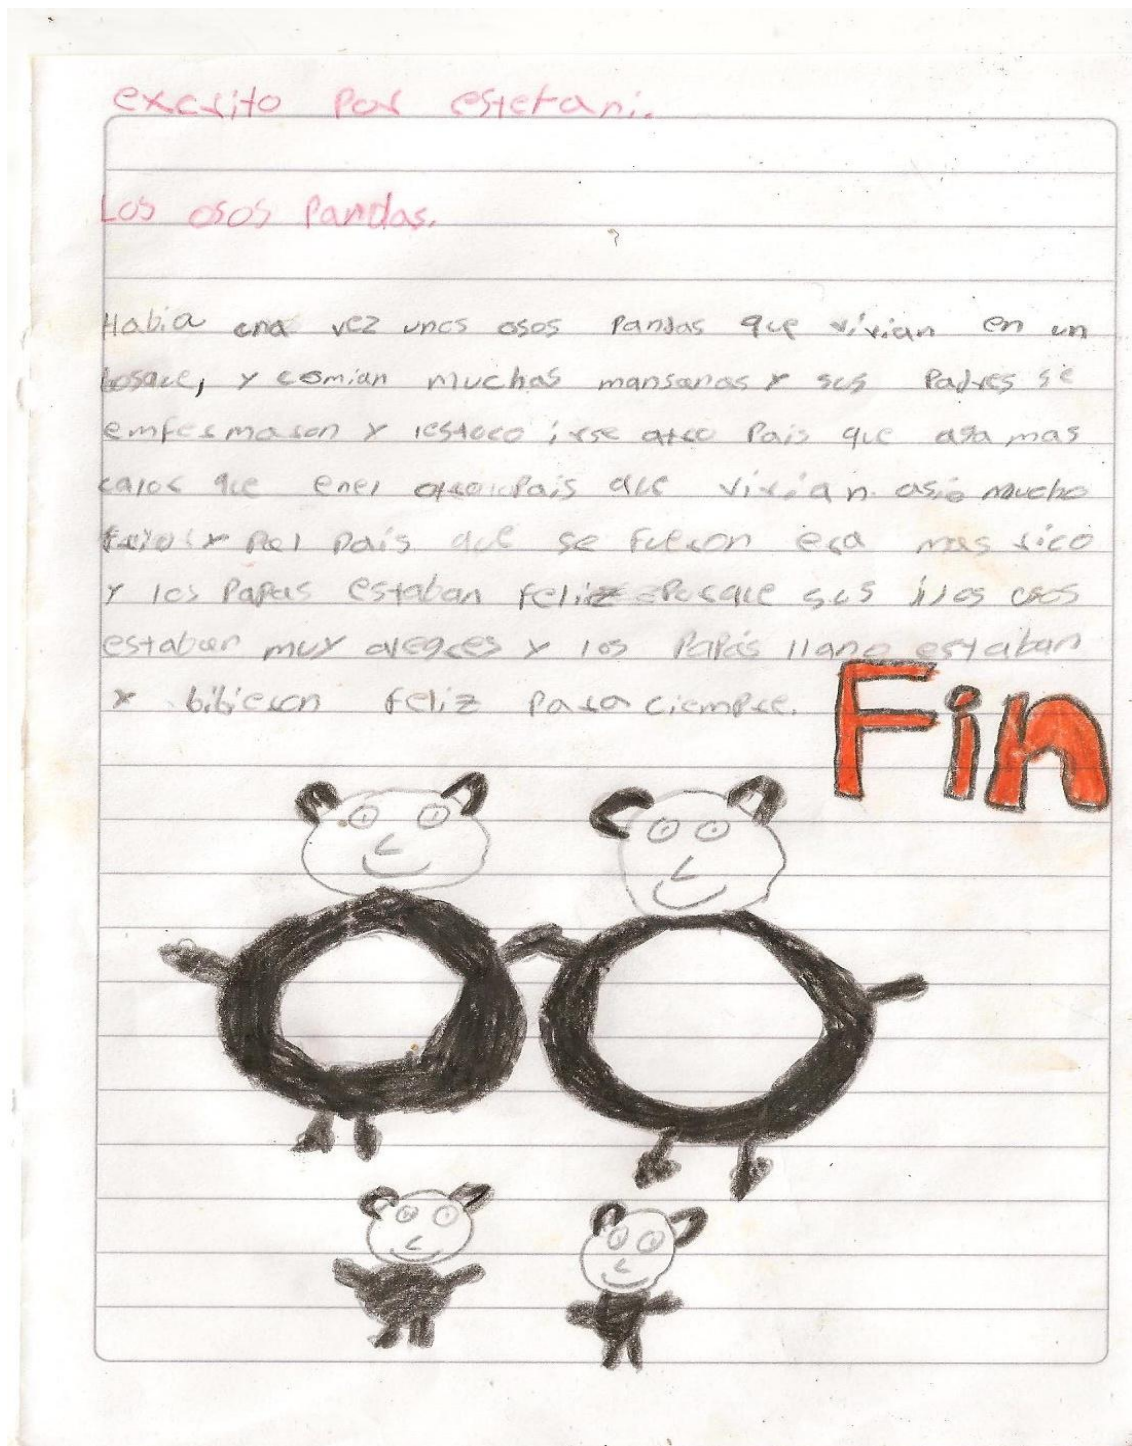 excrito por estefani.
Los osos Pandas.
Habia una vez unos osos Pandas que vivian en un
bosque, y comian muchas mansanas y sus Padres se
emfermaron y lestoco irse atro Pais que asa mas
calor que enel otro Pais que vivian. asia mucho
frio y pel pais que se fueron era mas rico
y los Papas estaban feliz Porque sus ijos osos
estaban muy alegres y los Papás llano estaban
y bibieron feliz para ciempre.
Fin